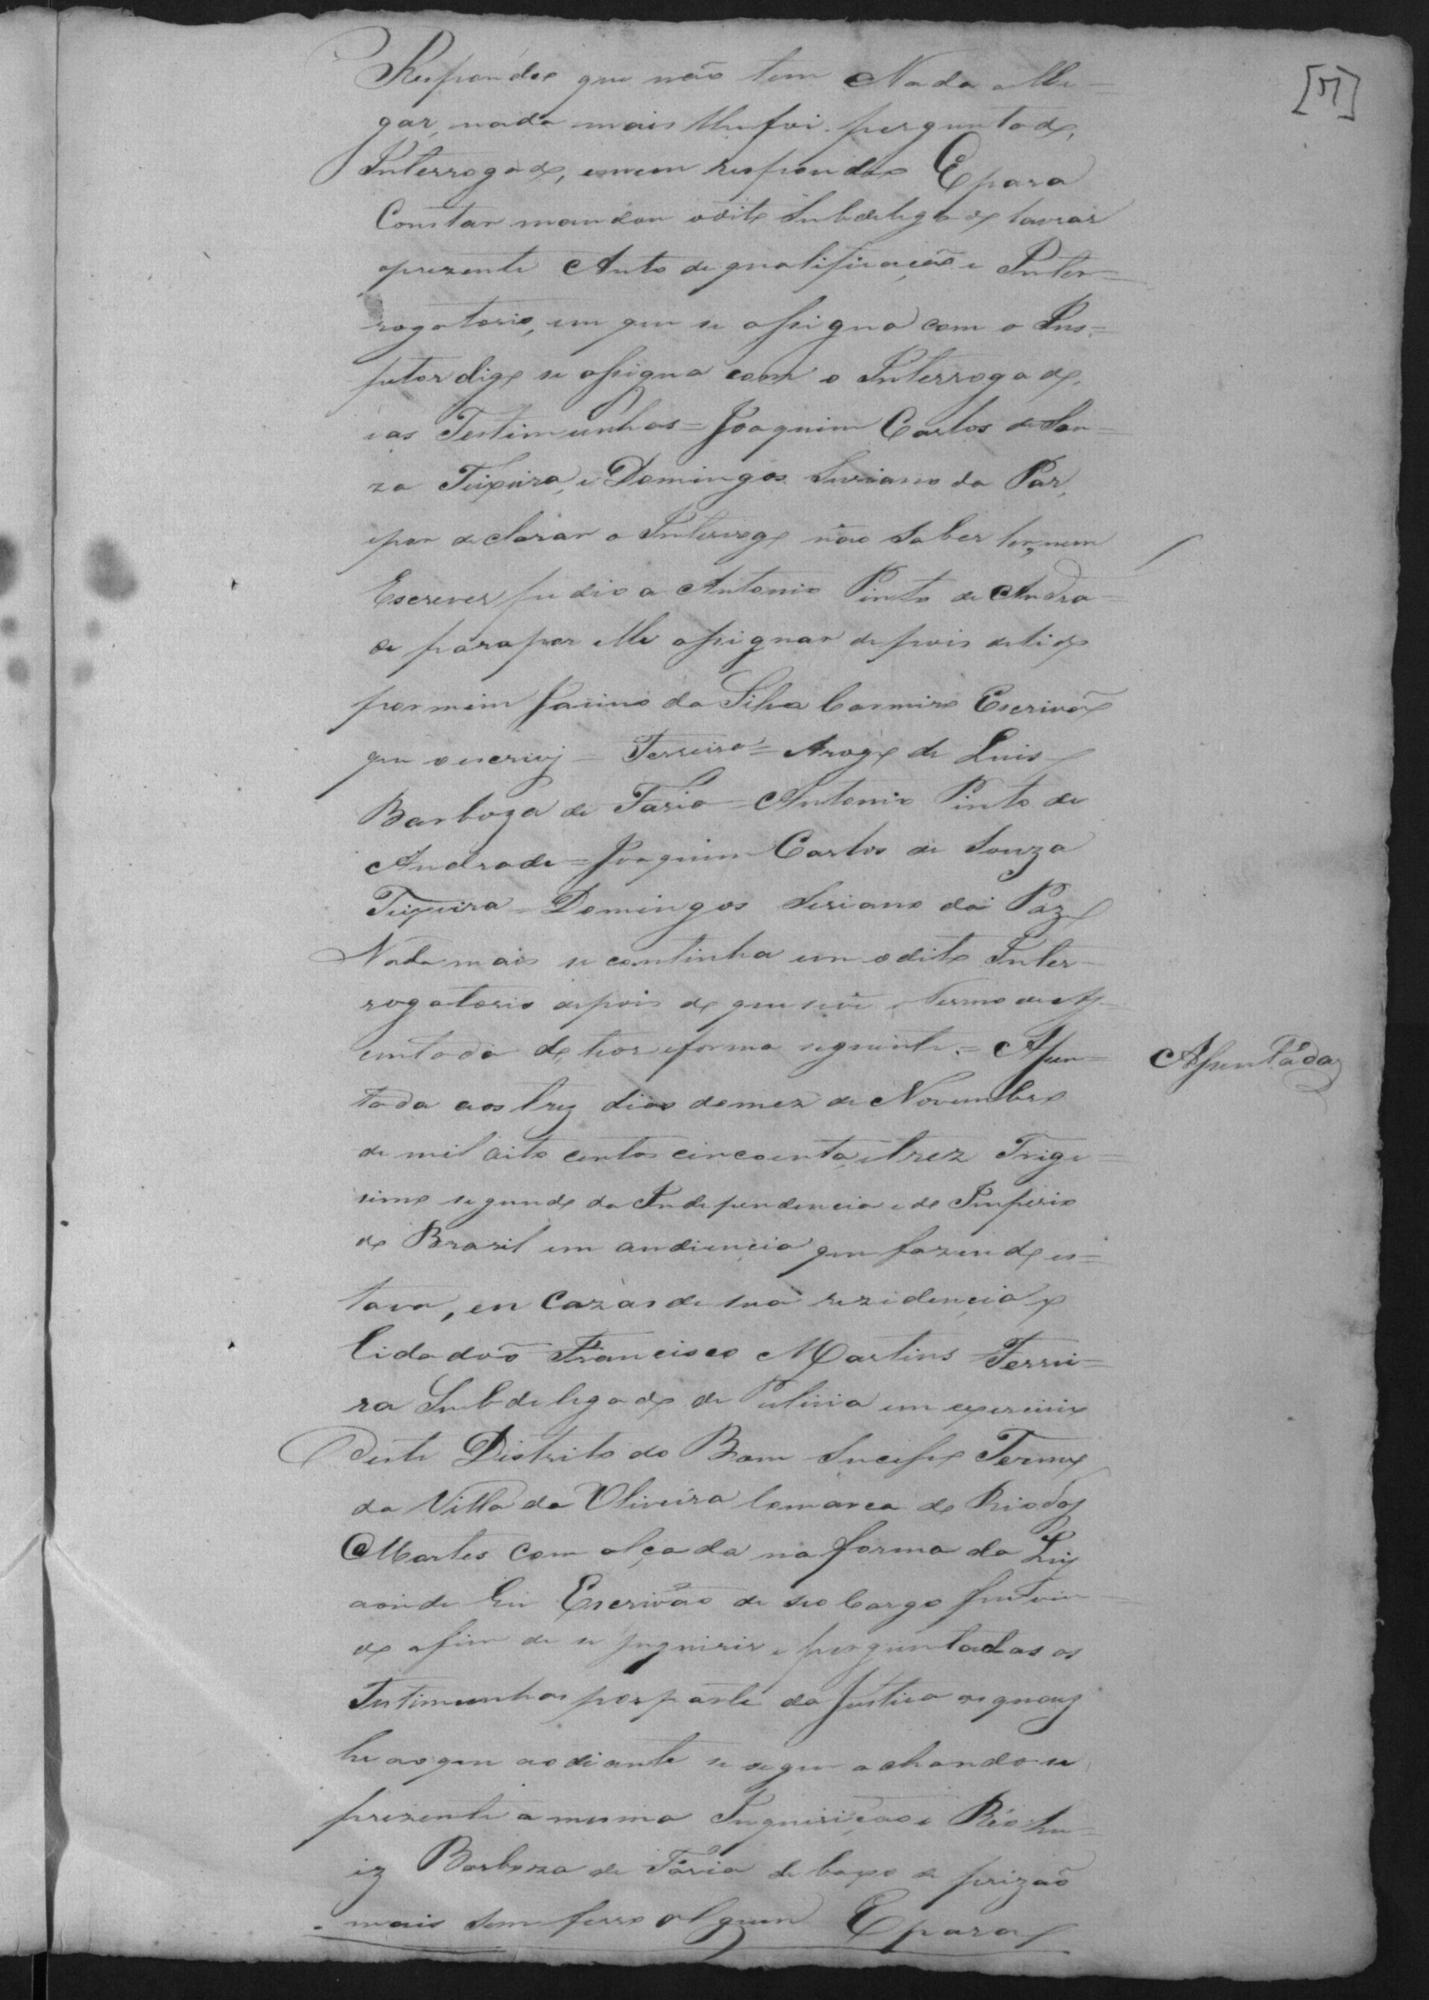 [7]
Respondeo que não tem Nada alle=
gar, nada mais lhe foi perguntado,
Interrogado, e nem respondeo E para
Constar mandou o dito Subdelegado lavrar
o prezente Auto de qualificação e Inter=
rogatorio, em que se assigna com o Ins=
petor digo se assigna com o Interrogado,
e as Testimunhas = Joaquim Carlos de Sou=
za Teixeira, e Domingos Siriano da Paz,
e por declarar o Interrogo não saber ler, nem
Escrever pedio a Antonio Pinto de Andra=
de para por elle assignar depois de lido
por mim Jacino da Silva Carmiro Escrivão
que o escrivj = Ferreira = Arogo de Luis
Barboza de Faria = Antonio Pinto de
Andrade = Joaquim Carlos de Souza
Teixeira = Domingos Siriano da Paz
Nada mais se continha em o dito Inter=
rogatorio depois do que se via o Termo de As
sentada do theor e forma seguinte. = Assen=
tada aos trez dias do mez de Novembro
de mil oito centos cincoenta, e trez Trige=
simo segundo da Independencia e do Imperio
do Brazil em audiencia que fazendo es=
tava, en Cazas de sua rezidencia o
Cidadão Francisco Martins Ferrei=
ra Subdelegado de Policia em exercicio
deste Distrito do Bom Sucesso Termo
da Villa da Oliveira Comarca do Rio das
Mortes com alçada na forma da Ley
aonde Eu Escrivão de seo Cargo fui vin
do afim de se inquirir e perguntadas as
Testimunhas por parte da Justica as quaes
he as que ao diante se segue achando se
prezente a mesma Inquirição o Réo Lu=
iz Barboza de Faria de baxo de prizão
mais sem ferro algum E para
Assentada